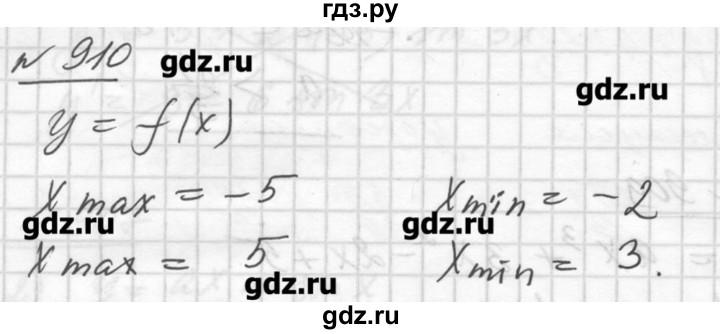 гдз.ру
№ 910
gdz.ru
gdz.ru
y = f(x)
x max = -5 x min = -2
gdz.ru gdz.ru
x max = 5 x min = 3.
gdz.ru
gdz.ru